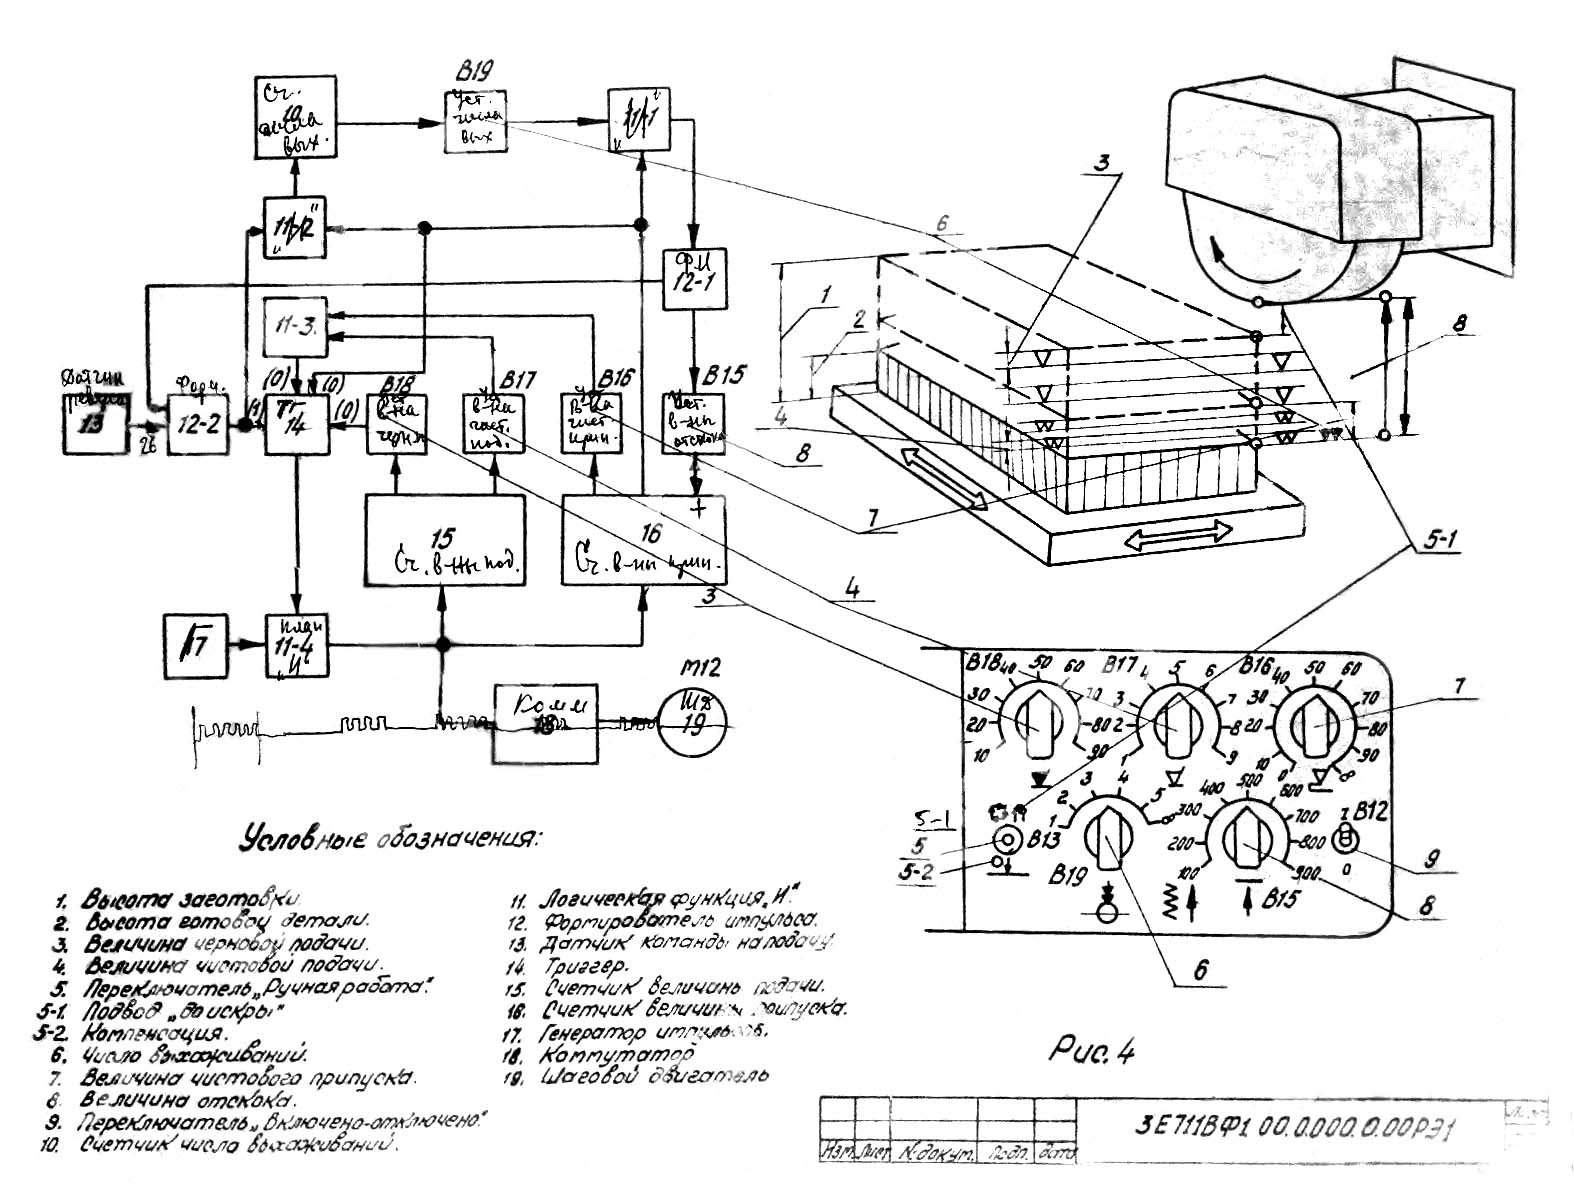 В19
Сч.
10
числа
вых.
Уст.
числа
вых
"11-1"
11-2
"И"
ФИ
12-1
11-3.
(0)
(0)
В18
В17
В16
В15
Датчик
реверса
13
26
Форм.
12-2
(1)
Тг
14
(0)
Уст
в-на
черн
Уст
в-на
чист.
под.
Уст
в-на
чист.
прип.
Уст.
в-ны
отскока
15
Сч. в-ны под.
+
16
Сч. в-ны прип.
17
клап
11-4
"И"
Комм
18
М12
ШД
19
1
2
3
4
6
8
7
5-1
8
3
4
В18
10
20
30
40
50
60
70
80
90
В17
1
2
3
4
5
6
7
8
9
В16
0
10
20
30
40
50
60
70
80
90
∞
7
5-1
5
5-2
В13
В19
1
2
3
4
5
∞
100
200
300
400
500
600
700
800
900
В15
В12
0
9
8
6
Условные обозначения:
1. Высота заготовки.
2. Высота готовой детали.
3. Величина черновой подачи.
4. Величина чистовой подачи.
5. Переключатель „Ручная работа".
5-1. Подвод „до искры"
5-2. Компенсация.
6. Число выхаживаний.
7. Величина чистового припуска.
8. Величина отскока.
9. Переключатель „Включено-отключено"
10. Счетчик числа выхаживаний.
11. Логическая функция „И".
12. Формирователь импульса.
13. Датчик команды на подачу
14. Триггер.
15. Счетчик величины подачи.
16. Счетчик величины припуска.
17. Генератор импульсов.
18. Коммутатор
19. Шаговой двигатель
Рис. 4
3Е711ВФ1 00.0.000.0.00РЭ1
Изм Лист № докум. Подп. дата